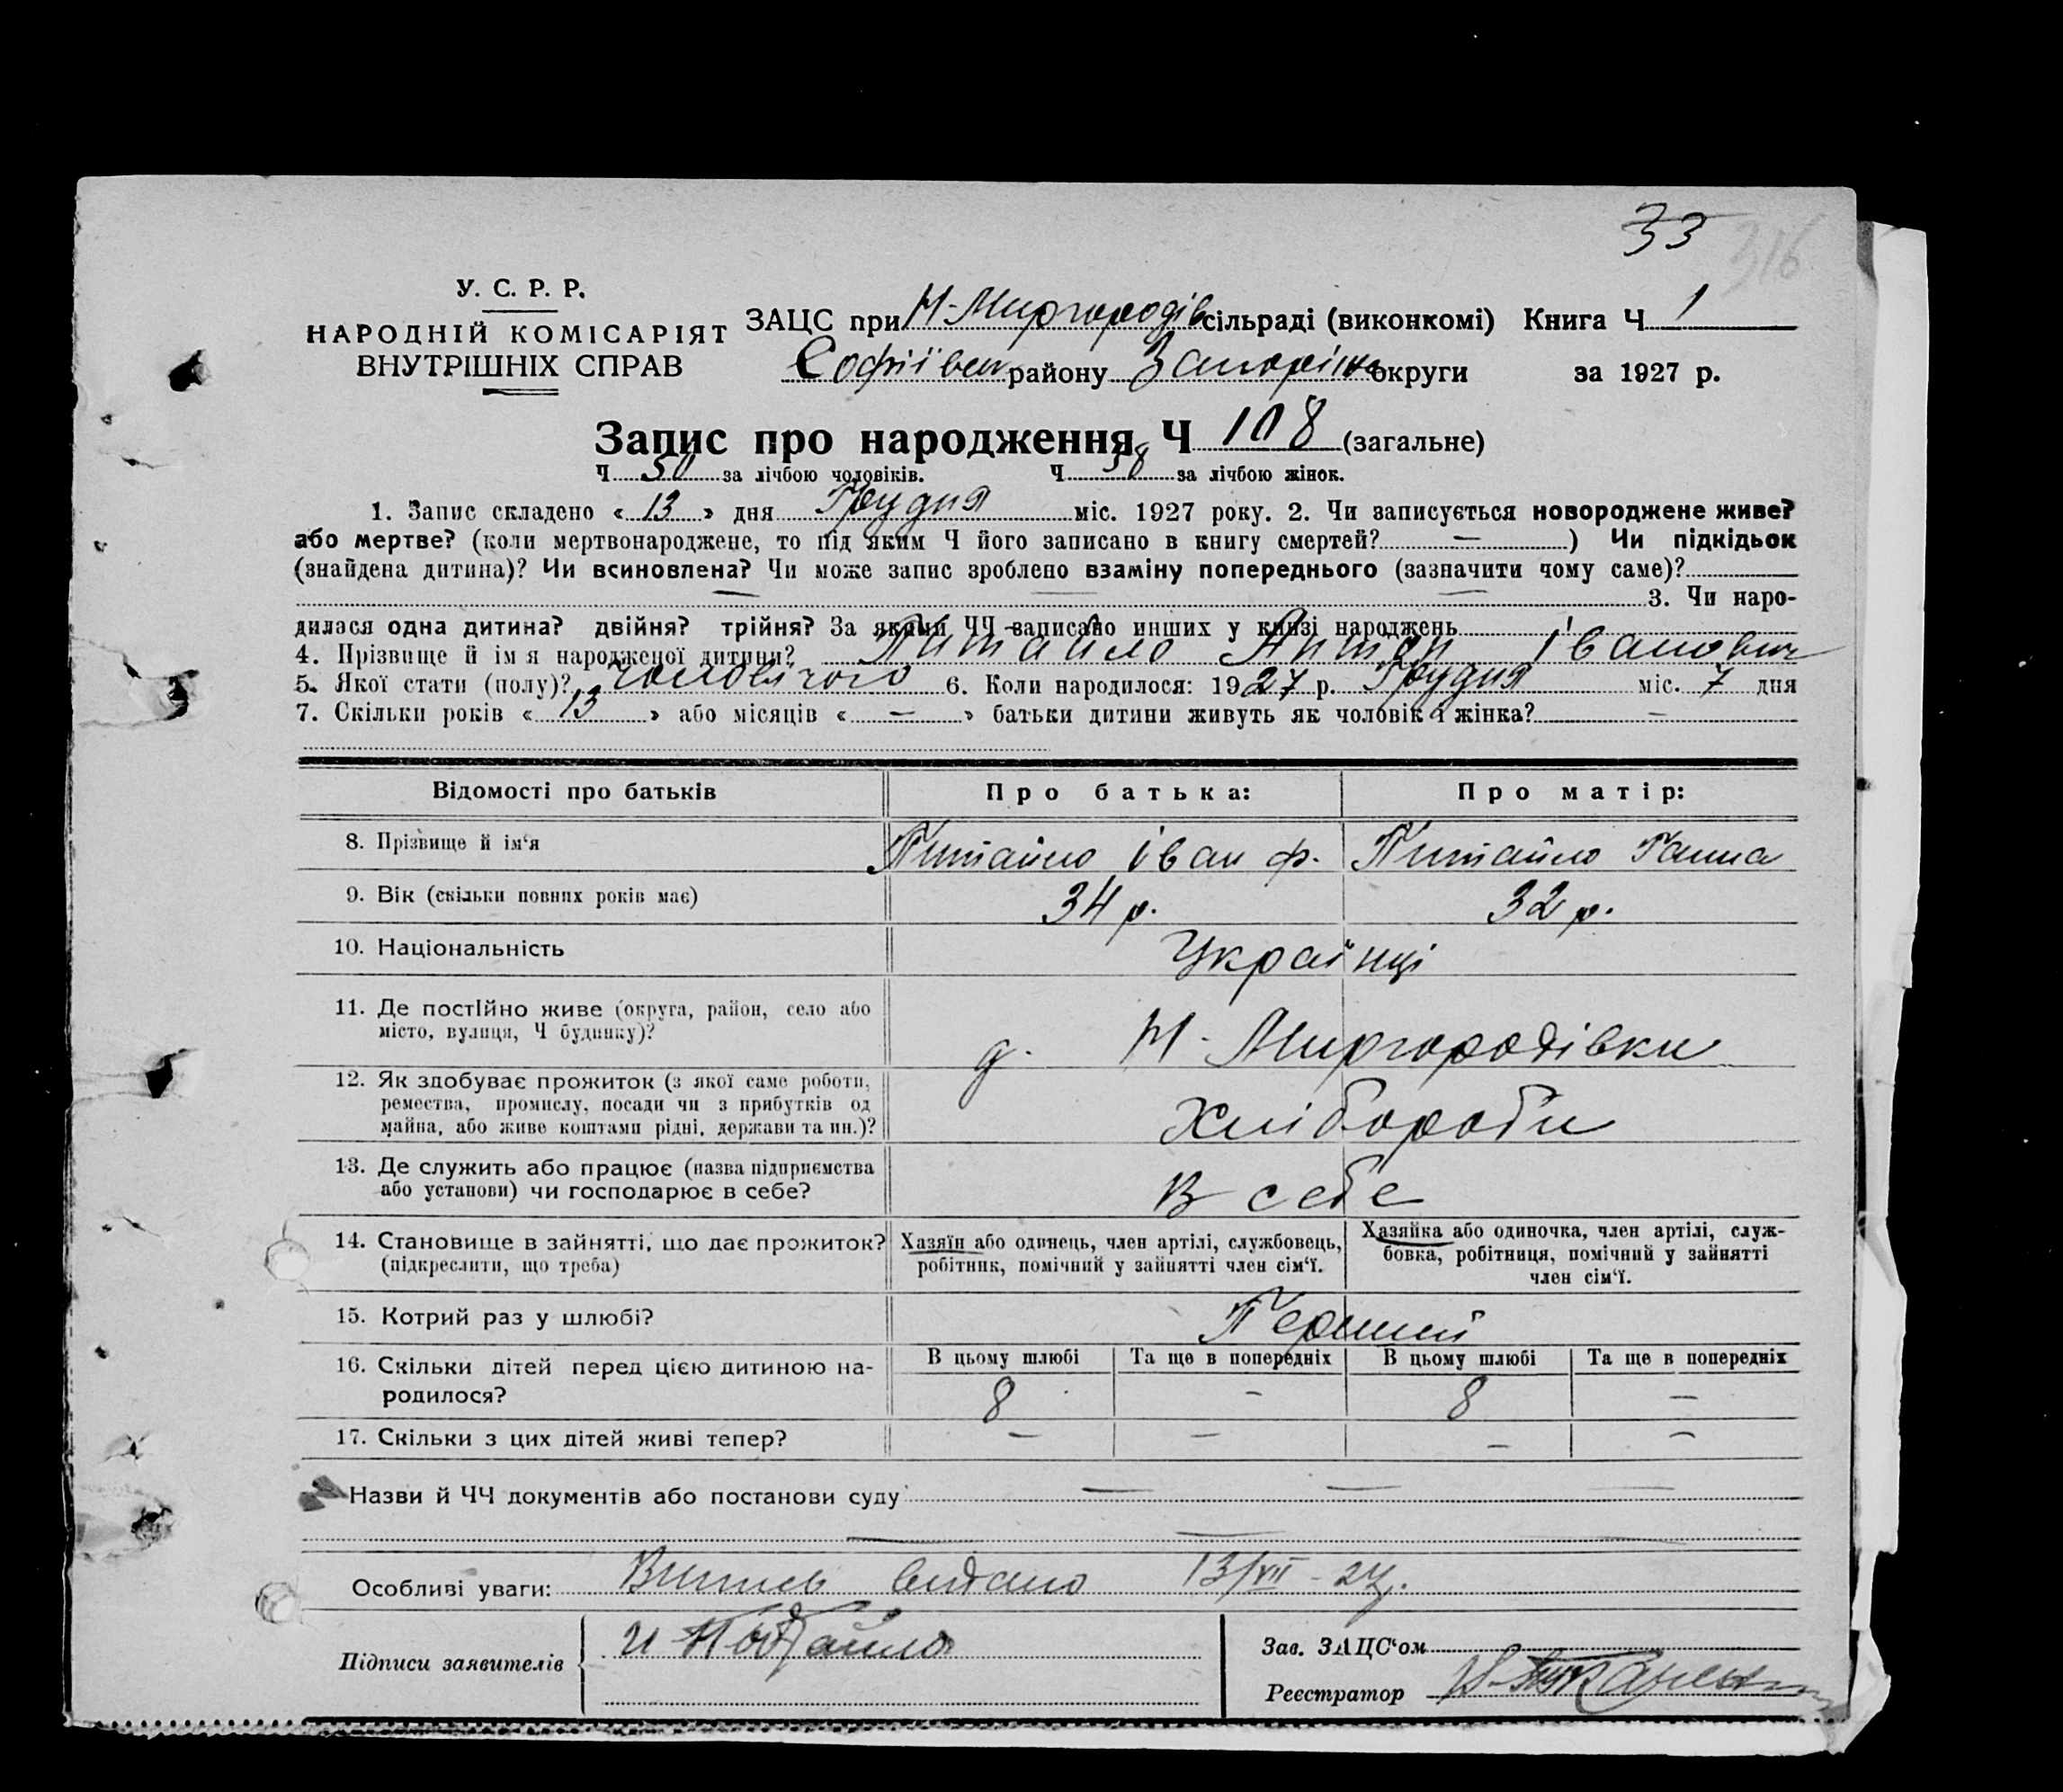 33 316
У. С. Р. Р.
НАРОДНІЙ КОМІСАРІЯТ
ВНУТРІШНІХ СПРАВ
ЗАЦС при Н-Миргородів сільраді (виконкомі) Книга Ч 1
Софіївськ району Запоріжж округи за 1927 р.
Запис про народження Ч 108 (загальне)
Ч 50 за лічбою чоловіків. Ч 58 за лічбою жінок.
1. Запис складено « 13 » дня Грудня міс. 1927 року. 2. Чи записується новороджене живе?
або мертве? (коли мертвонароджене, то під яким Ч його записано в книгу смертей? — ) Чи підкідьок
(знайдена дитина)? Чи всиновлена? Чи може запис зроблено взаміну попереднього (зазначити чому саме)?
— — — 3. Чи наро-
дилася одна дитина? двійня? трійня? За якими ЧЧ записано инших у книзі народжень
4. Прізвище й імя народженої дитини? Питайло Антон Іванович
5. Якої стати (полу)? чоловічого 6. Коли народилося: 1927 р. Грудня міс. 7 дня
7. Скільки років « 13 » або місяців « — » батьки дитини живуть як чоловік і жінка? —
Відомості про батьків Про батька: Про матір:
8. Прізвище й ім‘я Питайло Іван Ф. Питайло Ганна
9. Вік (скільки повних років має) 34 р. 32 р.
10. Національність Українці
11. Де постійно живе (округа, район, село або
місто, вулиця, Ч будинку)? д. Н-Миргородівки
12. Як здобуває прожиток (з якої саме роботи,
ремества, промислу, посади чи з прибутків од
майна, або живе коштами рідні, держави та ин.)? Хлібороби
13. Де служить або працює (назва підприємства
або установи) чи господарює в себе? В себе
14. Становище в зайнятті, що дає прожиток?
(підкреслити, що треба)
Хазяїн або одинець, член артілі, службовець,
робітник, помічний у зайнятті член сім‘ї.
Хазяйка або одиночка, член артілі, служ-
бовка, робітниця, помічний у зайнятті
член сім‘ї.
15. Котрий раз у шлюбі? Перший
16. Скільки дітей перед цією дитиною на-
родилося?
В цьому шлюбі Та ще в попередніх В цьому шлюбі Та ще в попередніх
8 - 8 —
17. Скільки з цих дітей живі тепер? — — — —
Назви й ЧЧ документів або постанови суду — — —
Особливі уваги: Випись видано 13/XII-27.
Підписи заявителів
Зав. ЗАЦС‘ом
Реєстратор